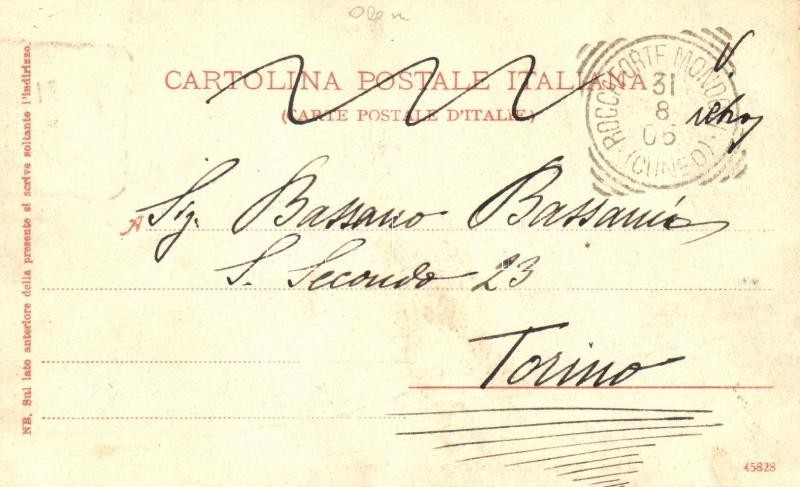 CARTOLINA POSTALE ITALIANA
(CARTE POSTALE D'ITALIE)
ROCCAFORTE MONDOVI
31
8
05
(CUNEO)
V.
retro
A Sig. Bassano Bassani
S. Secondo 23
Torino
NB. Sul lato anteriore della presente si scrive soltanto l'indirizzo.
45828